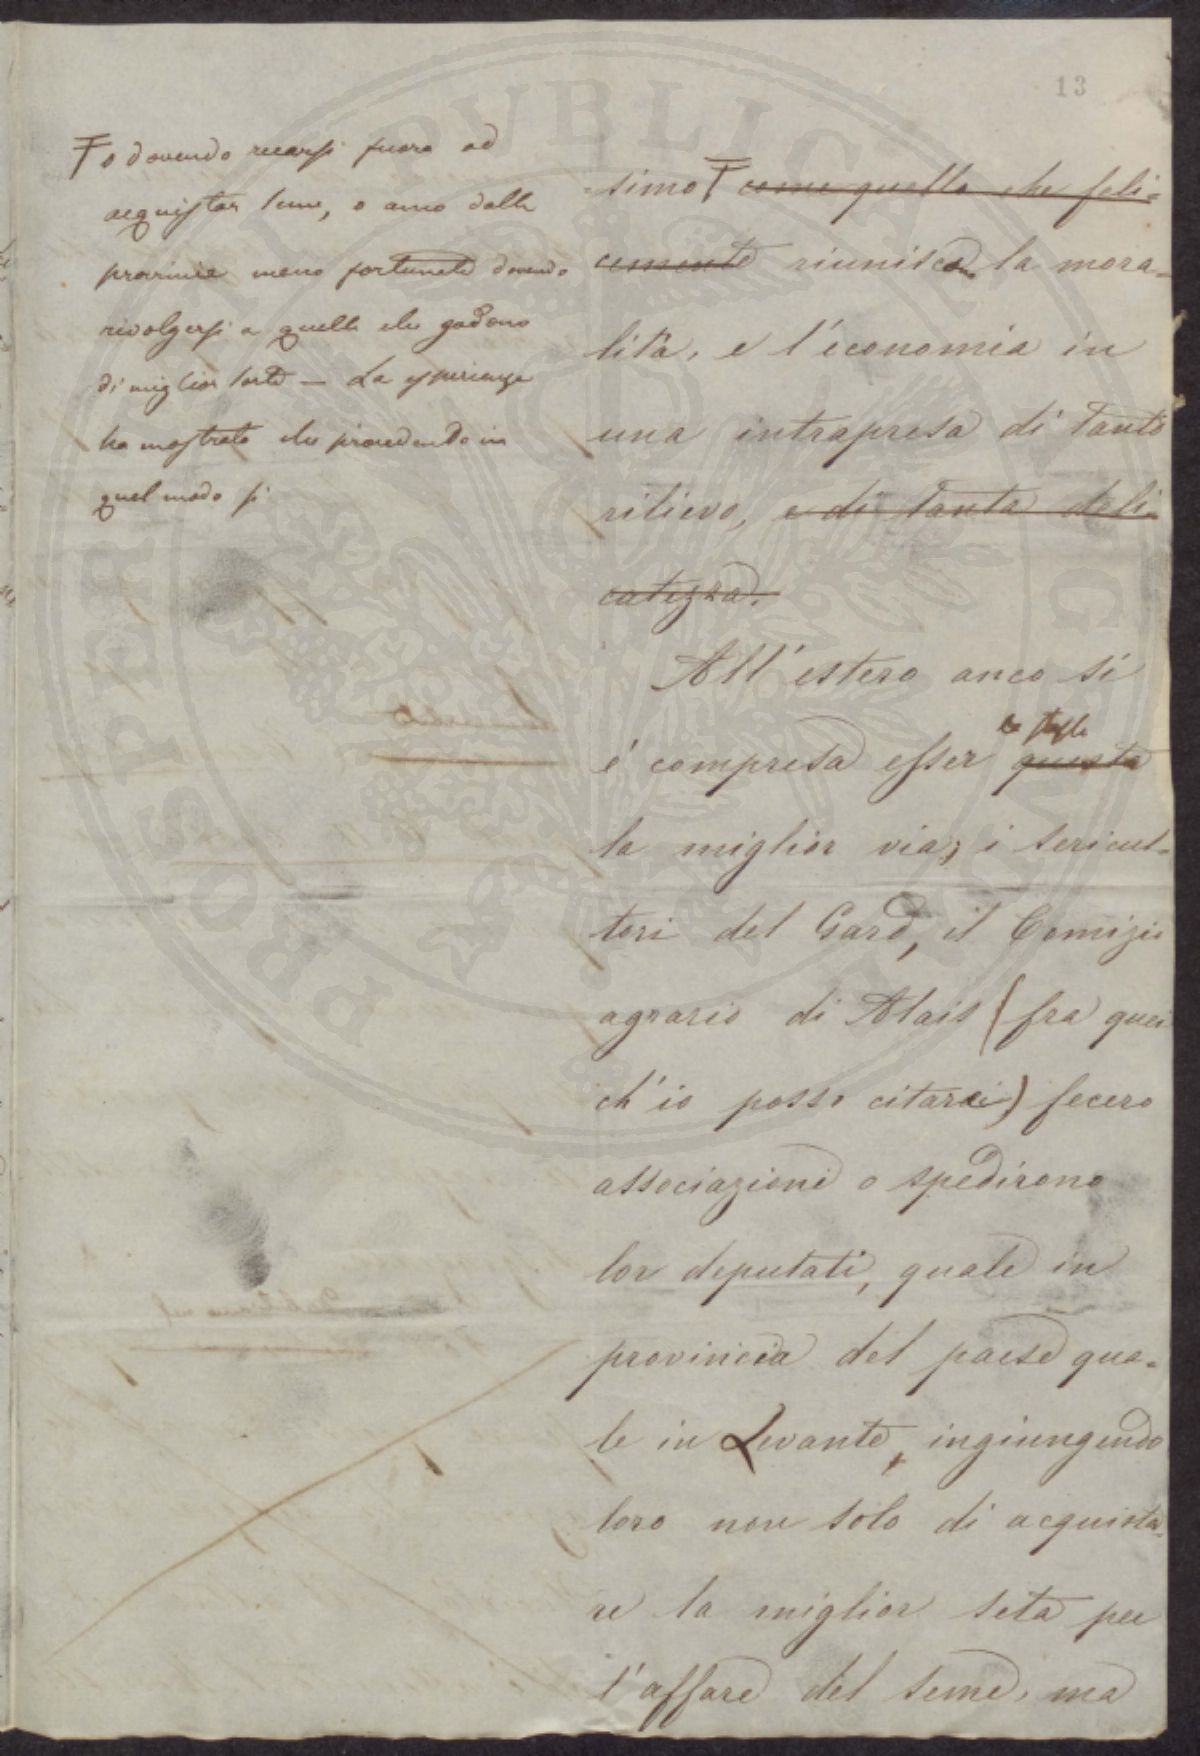 13
o dovendo recarsi fuora ad
acquistar seme, o anco dalle
provincie meno fortunate dovendo
rivolgersi a quelle che godono
di miglior sorte — La esperienza
ha mostrato che procedendo in
quel modo si
simo come quella che feli-
cemente riunisca la mora-
lità, e l'economia in
una intrapresa di tanto
rilievo, e di tanta deli-
catezza.
All'estero anco si
é compresa esser questa
la miglior via; i sericul-
tori del Gard, il Comizio
agrario di Alais (fra quei
ch'io posso citarci) fecero
associazione o spedirono
lor deputati, quale in
provincia del paese qua-
le in Levante, ingiungendo
loro non solo di acquista-
re la miglior seta per
l'affare del seme, ma
PROSPERITATI PUBLICAE